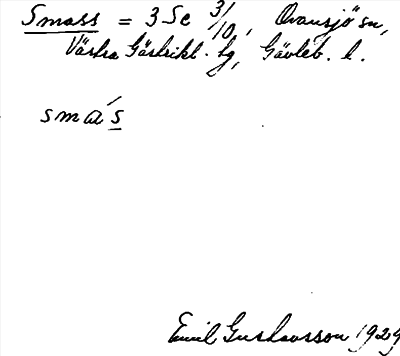 Smass = 3 Se 3/10, Ovansjö sn,
Västra Gästrikl. tg, Gävleb. l.
smás
Emil Gustavsson 1929